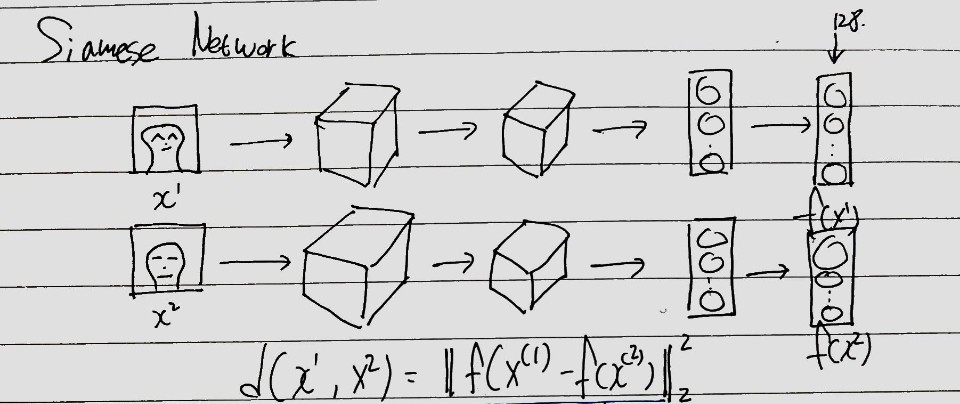 Siamese Network
128.
x¹
f(x¹)
x²
f(x²)
d(x¹, x²) = ‖f(x⁽¹⁾ - f(x⁽²⁾)‖₂²